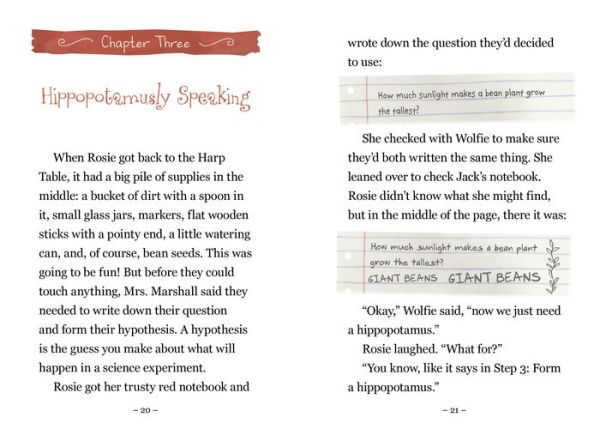 Chapter Three
Hippopotamusly Speaking
When Rosie got back to the Harp
Table, it had a big pile of supplies in the
middle: a bucket of dirt with a spoon in
it, small glass jars, markers, flat wooden
sticks with a pointy end, a little watering
can, and, of course, bean seeds. This was
going to be fun! But before they could
touch anything, Mrs. Marshall said they
needed to write down their question
and form their hypothesis. A hypothesis
is the guess you make about what will
happen in a science experiment.
Rosie got her trusty red notebook and
– 20 –
wrote down the question they’d decided
to use:
How much sunlight makes a bean plant grow
the tallest?
She checked with Wolfie to make sure
they’d both written the same thing. She
leaned over to check Jack’s notebook.
Rosie didn’t know what she might find,
but in the middle of the page, there it was:
How much sunlight makes a bean plant
grow the tallest?
GIANT BEANS GIANT BEANS
“Okay,” Wolfie said, “now we just need
a hippopotamus.”
Rosie laughed. “What for?”
“You know, like it says in Step 3: Form
a hippopotamus.”
– 21 –